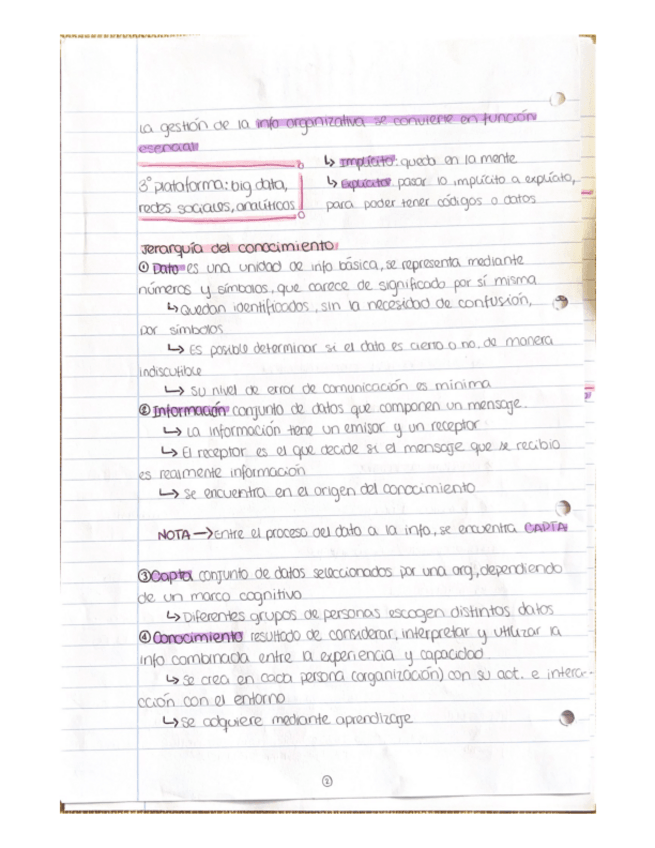 La gestión de la info organizativa se convierte en función
esencial
3° plataforma: big data,
redes sociales, analíticas
↳ Implícito: queda en la mente
↳ Explícito: pasar lo implícito a explícito,
para poder tener códigos o datos
Jerarquía del conocimiento
① Dato es una unidad de info básica, se representa mediante
números y símbolos, que carece de significado por sí misma
↳ Quedan identificados, sin la necesidad de confusión,
por símbolos
↳ Es posible determinar si el dato es cierto o no, de manera
indiscutible
↳ Su nivel de error de comunicación es minima
② Información conjunto de datos que componen un mensaje.
↳ La información tiene un emisor y un receptor
↳ El receptor es el que decide si el mensaje que se recibio
es realmente información
↳ Se encuentra en el origen del conocimiento
NOTA → Entre el proceso del dato a la info, se encuentra CAPTA
③ Capta conjunto de datos seleccionados por una org, dependiendo
de un marco cognitivo
↳ Diferentes grupos de personas escogen distintos datos
④ Conocimiento resultado de considerar, interpretar y utilizar la
info combinada entre la experiencia y capacidad
↳ Se crea en cada persona (organización) con su act. e intera-
cción con el entorno
↳ Se adquiere mediante aprendizaje
②